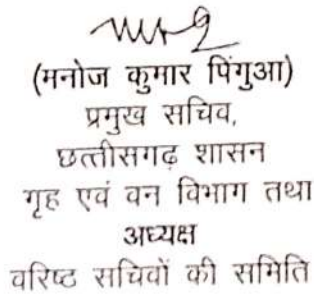 (मनोज कुमार पिंगुआ)
प्रमुख सचिव,
छत्तीसगढ़ शासन
गृह एवं वन विभाग तथा
अध्यक्ष
वरिष्ट सचिवों की समिति